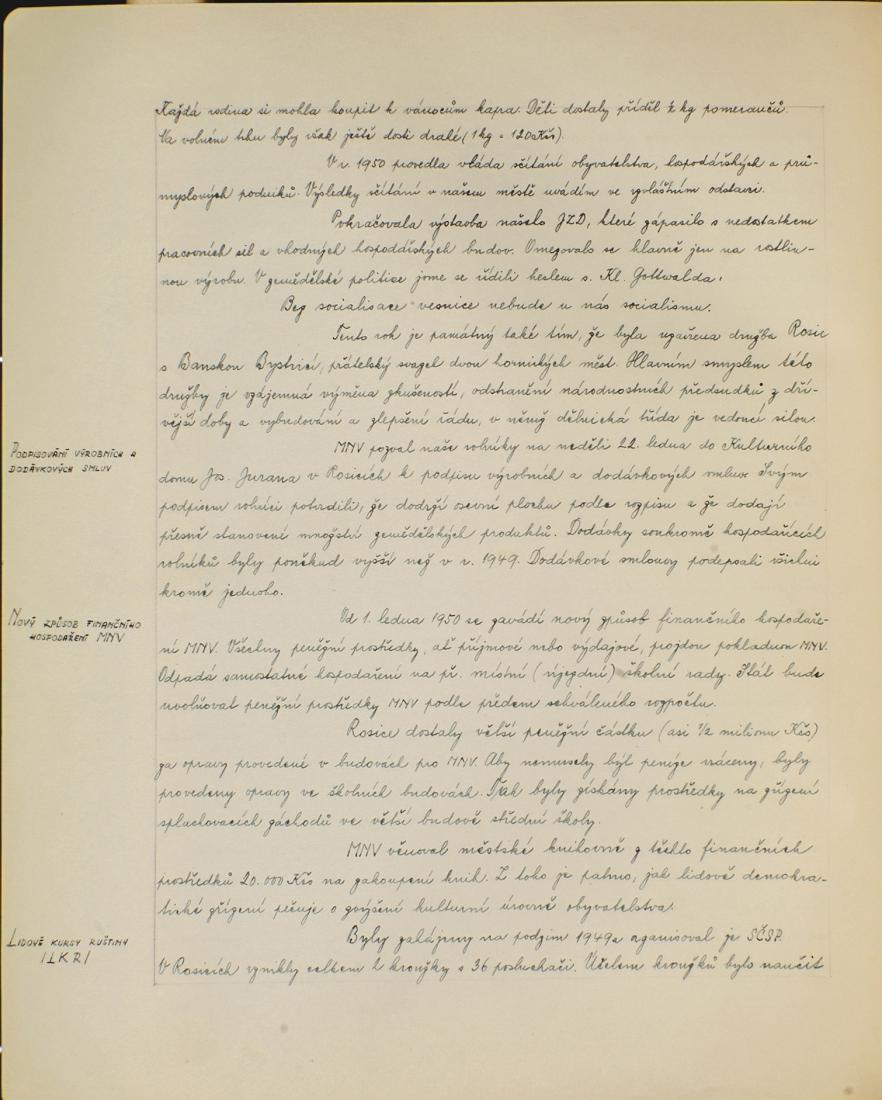 Každá rodina si mohla koupit k vánocům kapra. Děti dostaly příděl ½ kg pomerančů.
Na volném trhu byly však ještě dosti drahé (1 kg = 120 Kčs).
V r. 1950 provedla vláda sčítání obyvatelstva, hospodářských a prů-
myslových podniků. Výsledky sčítání v našem městě uvádím ve zvláštním odstavci.
Pokračovala výstavba našeho JZD, které zápasilo s nedostatkem
pracovních sil a vhodných hospodářských budov. Omezovalo se hlavně jen na rostlin-
nou výrobu. V zemědělské politice jsme se řídili heslem s. Kl. Gottwalda:
Bez socialisace vesnice nebude u nás socialismu.
Tento rok je památný také tím, že byla uzavřena družba Rosic
s Banskou Bystricí, přátelský svazek dvou hornických měst. Hlavním smyslem této
družby je vzájemná výměna zkušeností, odstranění národnostních předsudků z dří-
vější doby a vybudování a zlepšení řádu, v němž dělnická třída je vedoucí silou.
PODPISOVÁNÍ VÝROBNÍCH A
DODÁVKOVÝCH SMLUV
MNV pozval naše rolníky na neděli 22. ledna do Kulturního
domu Jos. Jurana v Rosicích k podpisu výrobních a dodávkových smluv. Svým
podpisem rolníci potvrdili, že dodrží osevní plochu podle rozpisu a že dodají
přesně stanovené množství zemědělských produktů. Dodávky soukromě hospodařících
rolníků byly poněkud vyšší než v r. 1949. Dodávkové smlouvy podepsali všichni
kromě jednoho.
NOVÝ ZPŮSOB FINANČNÍHO
HOSPODAŘENÍ MNV
Od 1. ledna 1950 se zavádí nový způsob finančního hospodaře-
ní MNV. Všechny peněžní prostředky, ať příjmové nebo výdajové, projdou pokladnou MNV.
Odpadá samostatné hospodaření na př. místní (újezdní) školní rady. Stát bude
uvolňovat peněžní prostředky MNV podle předem schváleného rozpočtu.
Rosice dostaly větší peněžní částku (asi ½ milionu Kčs)
za opravy provedené v budovách pro MNV. Aby nemusely být peníze vráceny, byly
provedeny opravy ve školních budovách. Tak byly získány prostředky na zřízení
splachovacích záchodů ve větší budově střední školy.
MNV věnoval městské knihovně z těchto finančních
prostředků 20.000 Kčs na zakoupení knih. Z toho je patrno, jak lidově demokra-
tické zřízení pečuje o zvýšení kulturní úrovně obyvatelstva.
LIDOVÉ KURSY RUŠTINY
/LKR/
Byly zahájeny na podzim 1949 a organisoval je SČSP.
V Rosicích vznikly celkem 2 kroužky s 36 posluchači. Účelem kroužků bylo naučit